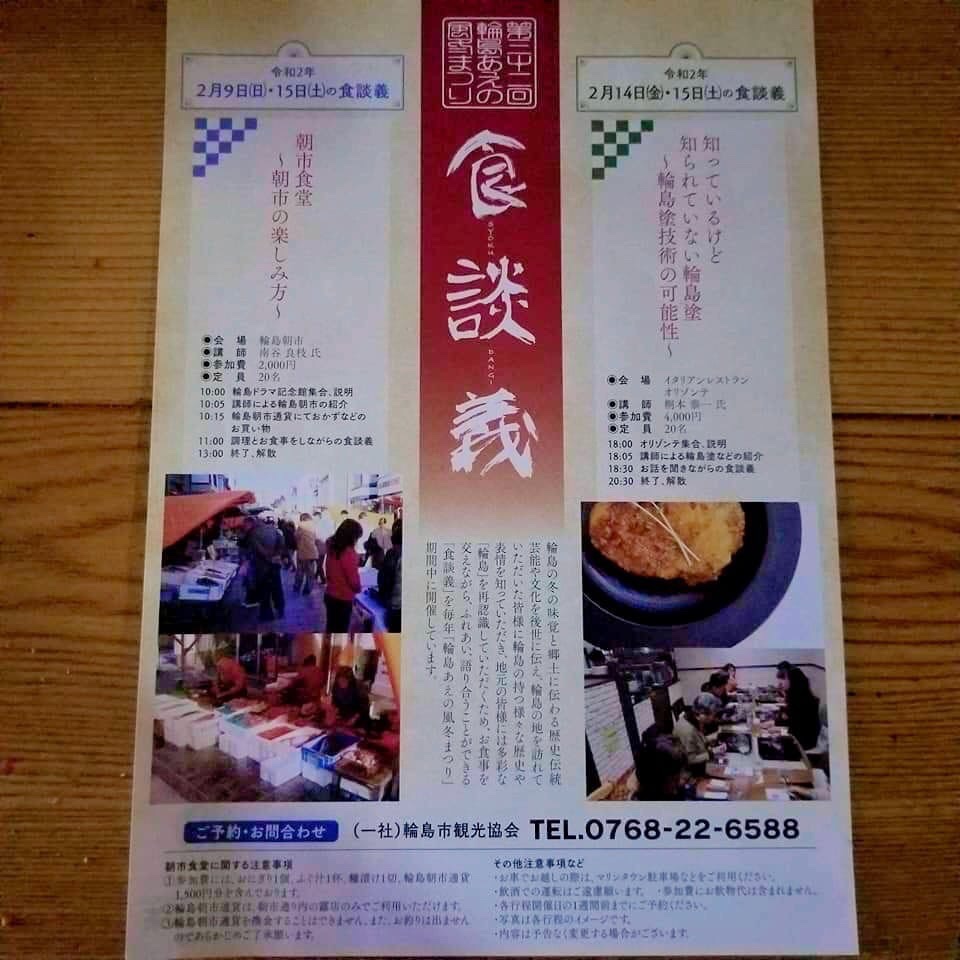 第二十二回
輪島あえの
風冬まつり
食談義
SYOKU
DANGI
令和2年
2月9日(日)・15日(土)の食談義
朝市食堂
～朝市の楽しみ方～
◉会　場　輪島朝市
◉講　師　南谷 良枝 氏
◉参加費　2,000円
◉定　員　20名
10:00 輪島ドラマ記念館集合、説明
10:05 講師による輪島朝市の紹介
10:15 輪島朝市通貨にておかずなどの
お買い物
11:00 調理とお食事をしながらの食談義
13:00 終了、解散
令和2年
2月14日(金)・15日(土)の食談義
知っているけど
知られていない輪島塗
～輪島塗技術の可能性～
◉会　場　イタリアンレストラン
オリゾンテ
◉講　師　桐本 泰一 氏
◉参加費　4,000円
◉定　員　20名
18:00 オリゾンテ集合、説明
18:05 講師による輪島塗などの紹介
18:30 お話を聞きながらの食談義
20:30 終了、解散
輪島の冬の味覚と郷土に伝わる歴史伝統
芸能や文化を後世に伝え、輪島の地を訪れて
いただいた皆様に輪島の持つ様々な歴史や
表情を知っていただき、地元の皆様には多彩な
「輪島」を再認識していただくため、お食事を
交えながら、ふれあい、語り合うことができる
「食談義」を毎年「輪島あえの風冬まつり」
期間中に開催しています。
ご予約・お問合わせ　(一社)輪島市観光協会 TEL.0768-22-6588
朝市食堂に関する注意事項
①参加費には、おにぎり1個、ふぐ汁1杯、糠漬け1切、輪島朝市通貨
1,500円分を含んでおります。
②輪島朝市通貨は、朝市通り内の露店のみでご利用いただけます。
③輪島朝市通貨を換金することはできません。また、お釣りは出ません
のであらかじめご了承願います。
その他注意事項など
・お車でお越しの際は、マリンタウン駐車場などをご利用ください。
・飲酒での運転はご遠慮願います。　・参加費にお飲物代は含まれません。
・各行程開催日の1週間前までにご予約ください。
・写真は各行程のイメージです。
・内容は予告なく変更する場合がございます。